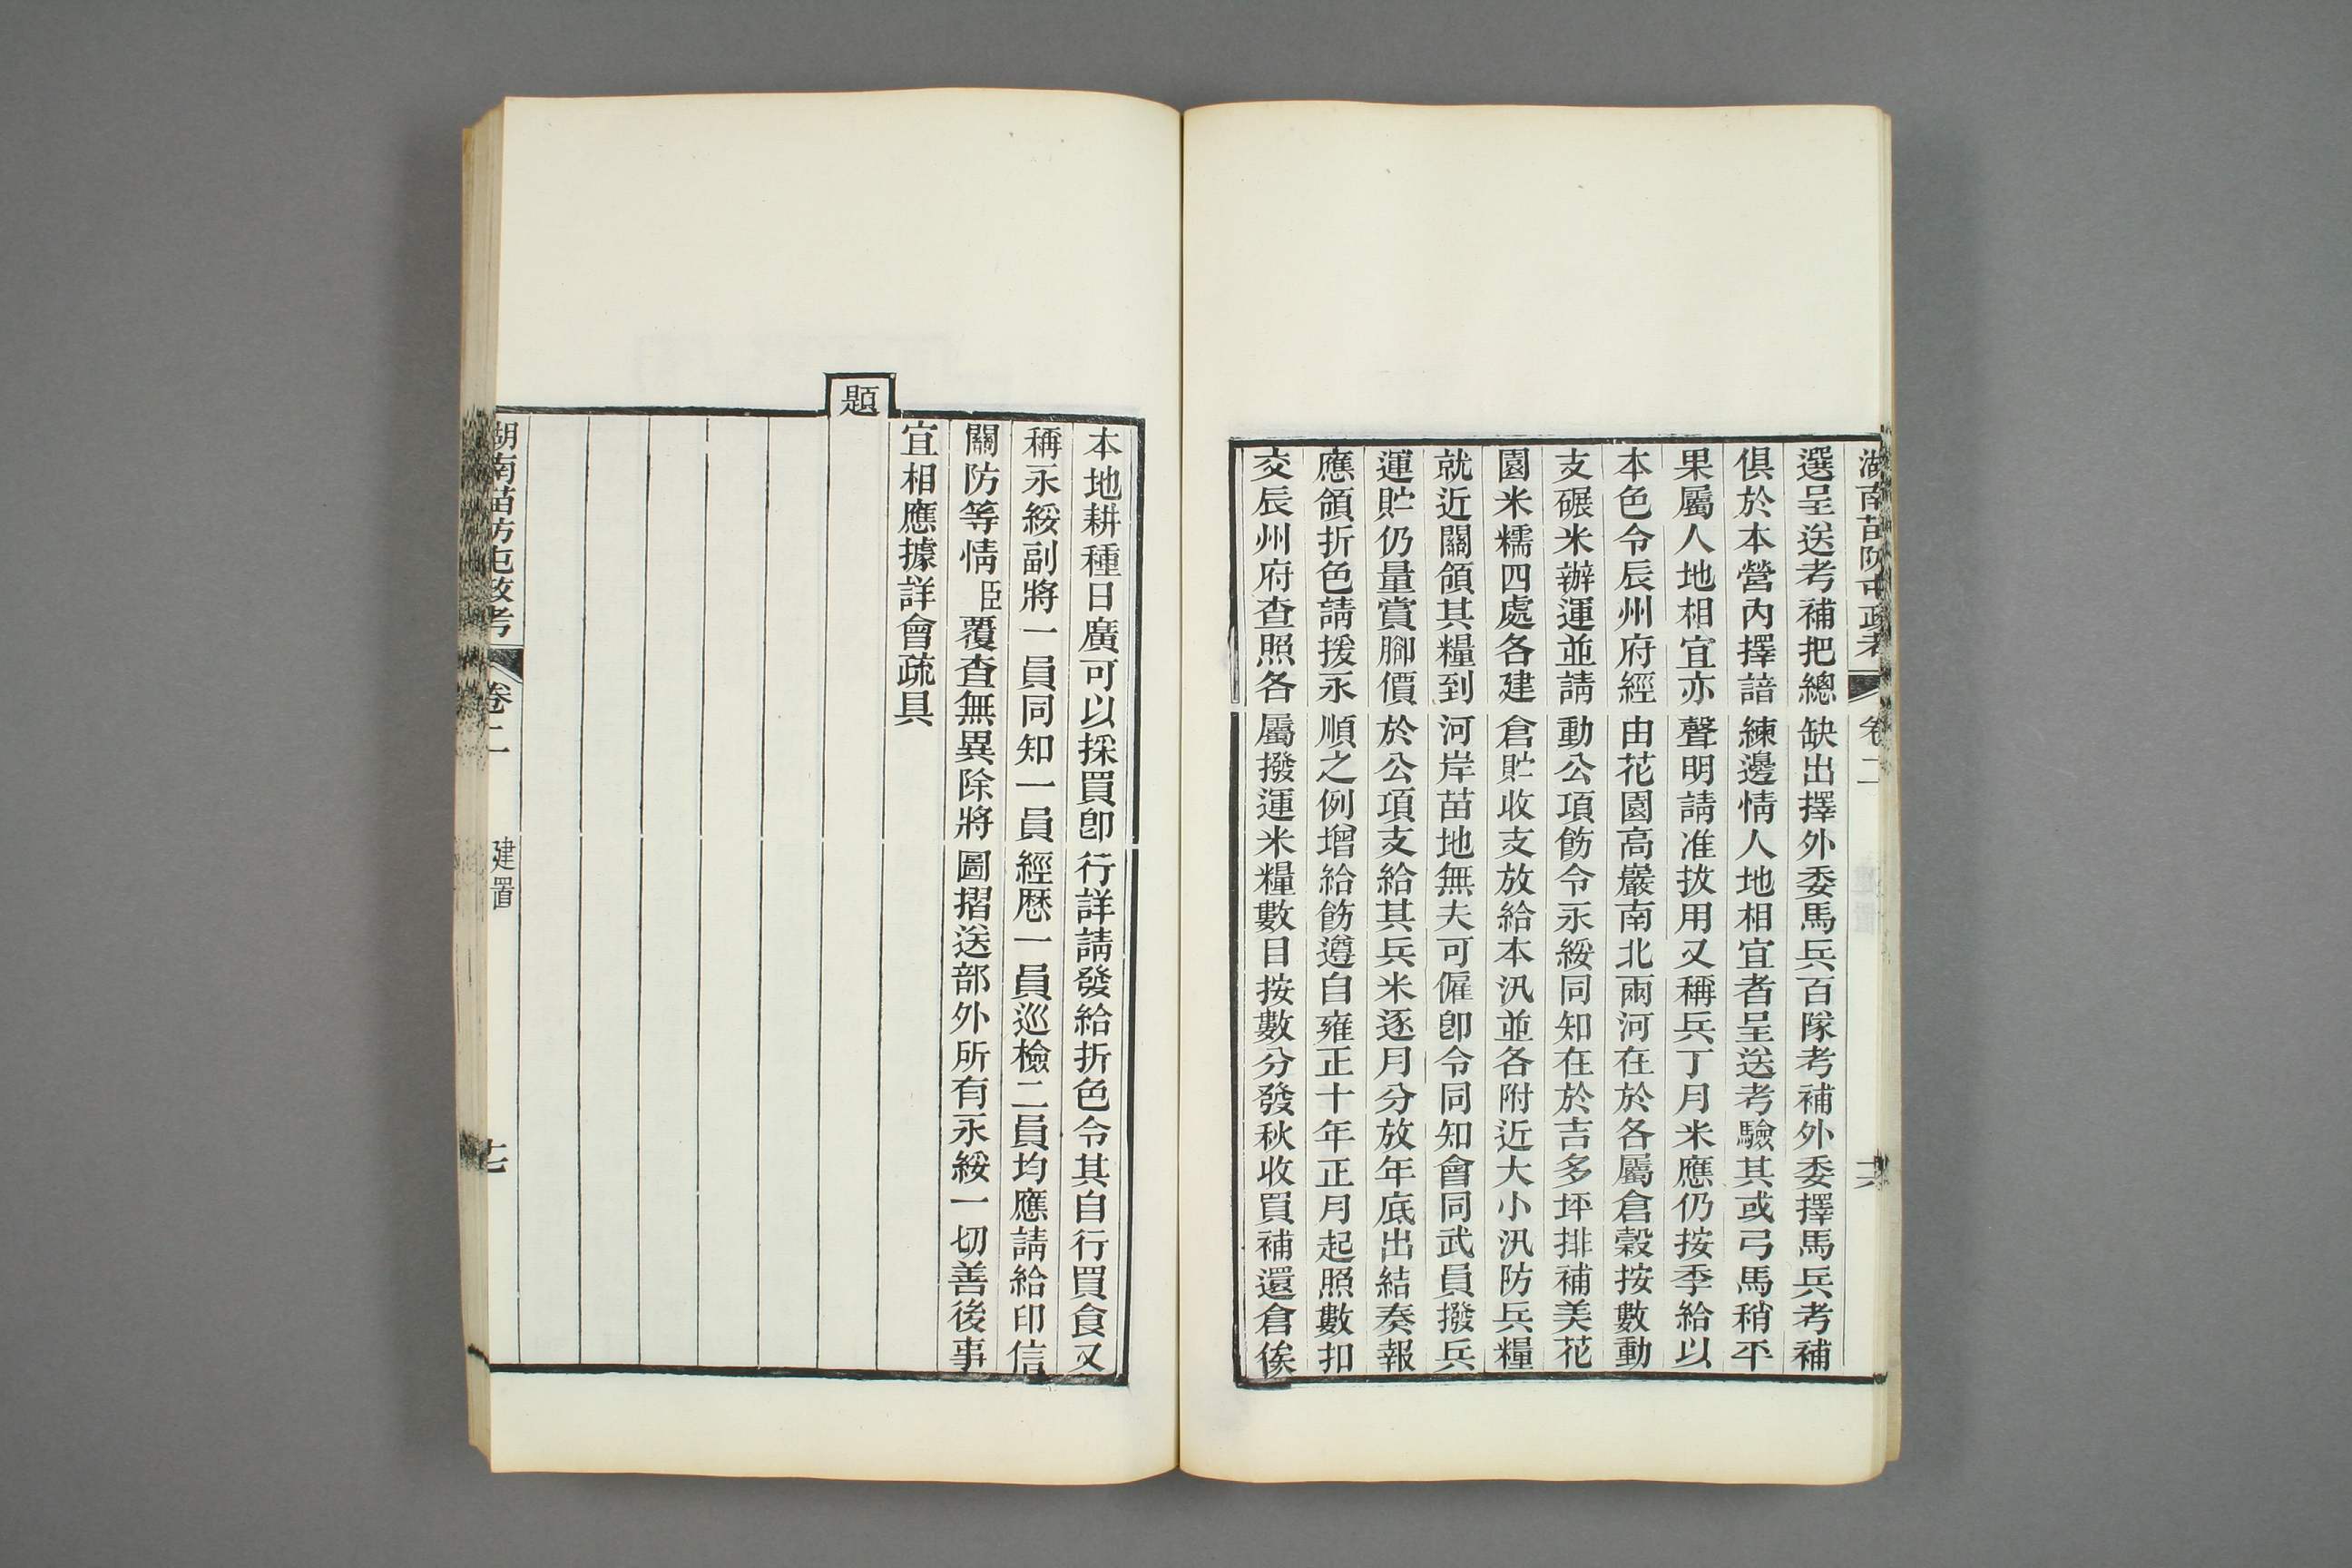 湖南苗防屯政考 卷二 十六
選呈送考補把總缺出擇外委馬兵百隊考補外委擇馬兵考補
俱於本營內擇諳練邊情人地相宜者呈送考驗其或弓馬稍平
果屬人地相宜亦聲明請准拔用又稱兵丁月米應仍按季給以
本色令辰州府經由花園高巖南北兩河在於各屬倉穀按數動
支碾米辦運並請動公項飭令永綏同知在於吉多坪排補美花
園米糯四處各建倉貯收支放給本汛並各附近大小汛防兵糧
就近關領其糧到河岸苗地無夫可僱卽令同知會同武員撥兵
運貯仍量賞腳價於公項支給其兵米逐月分放年底出結奏報
應領折色請援永順之例增給飭遵自雍正十年正月起照數扣
交辰州府查照各屬撥運米糧數目按數分發秋收買補還倉俟
本地耕種日廣可以採買卽行詳請發給折色令其自行買食又
稱永綏副將一員同知一員經歷一員巡檢二員均應請給印信
關防等情臣覆查無異除將圖摺送部外所有永綏一切善後事
宜相應據詳會疏具
題
湖南苗防屯政考 卷二 建置 十七